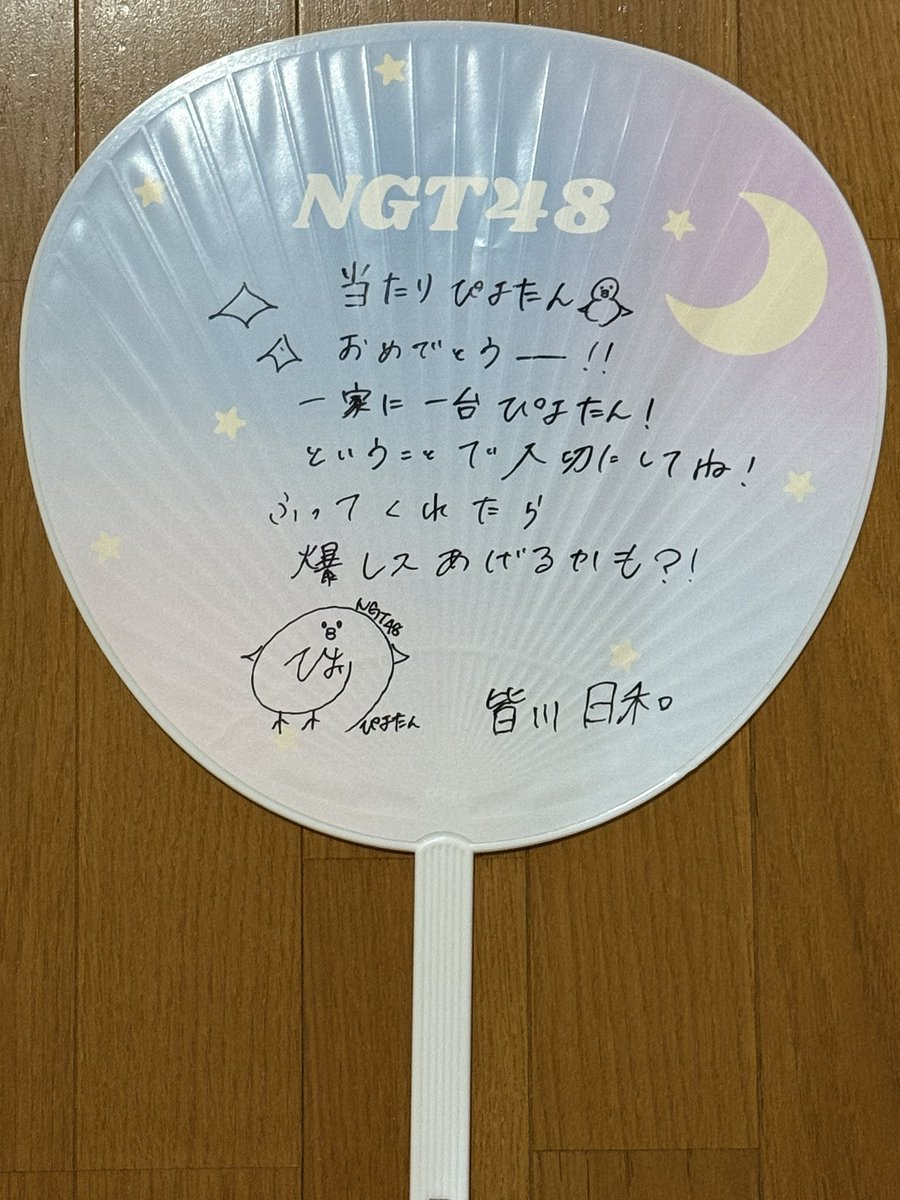 NGT48
当たりぴよたん
おめでとうー!!
一家に一台ぴよたん!
ということで大切にしてね!
ふってくれたら
爆レスあげるかも?!
NGT48
ぴより
ぴよたん
皆川日和